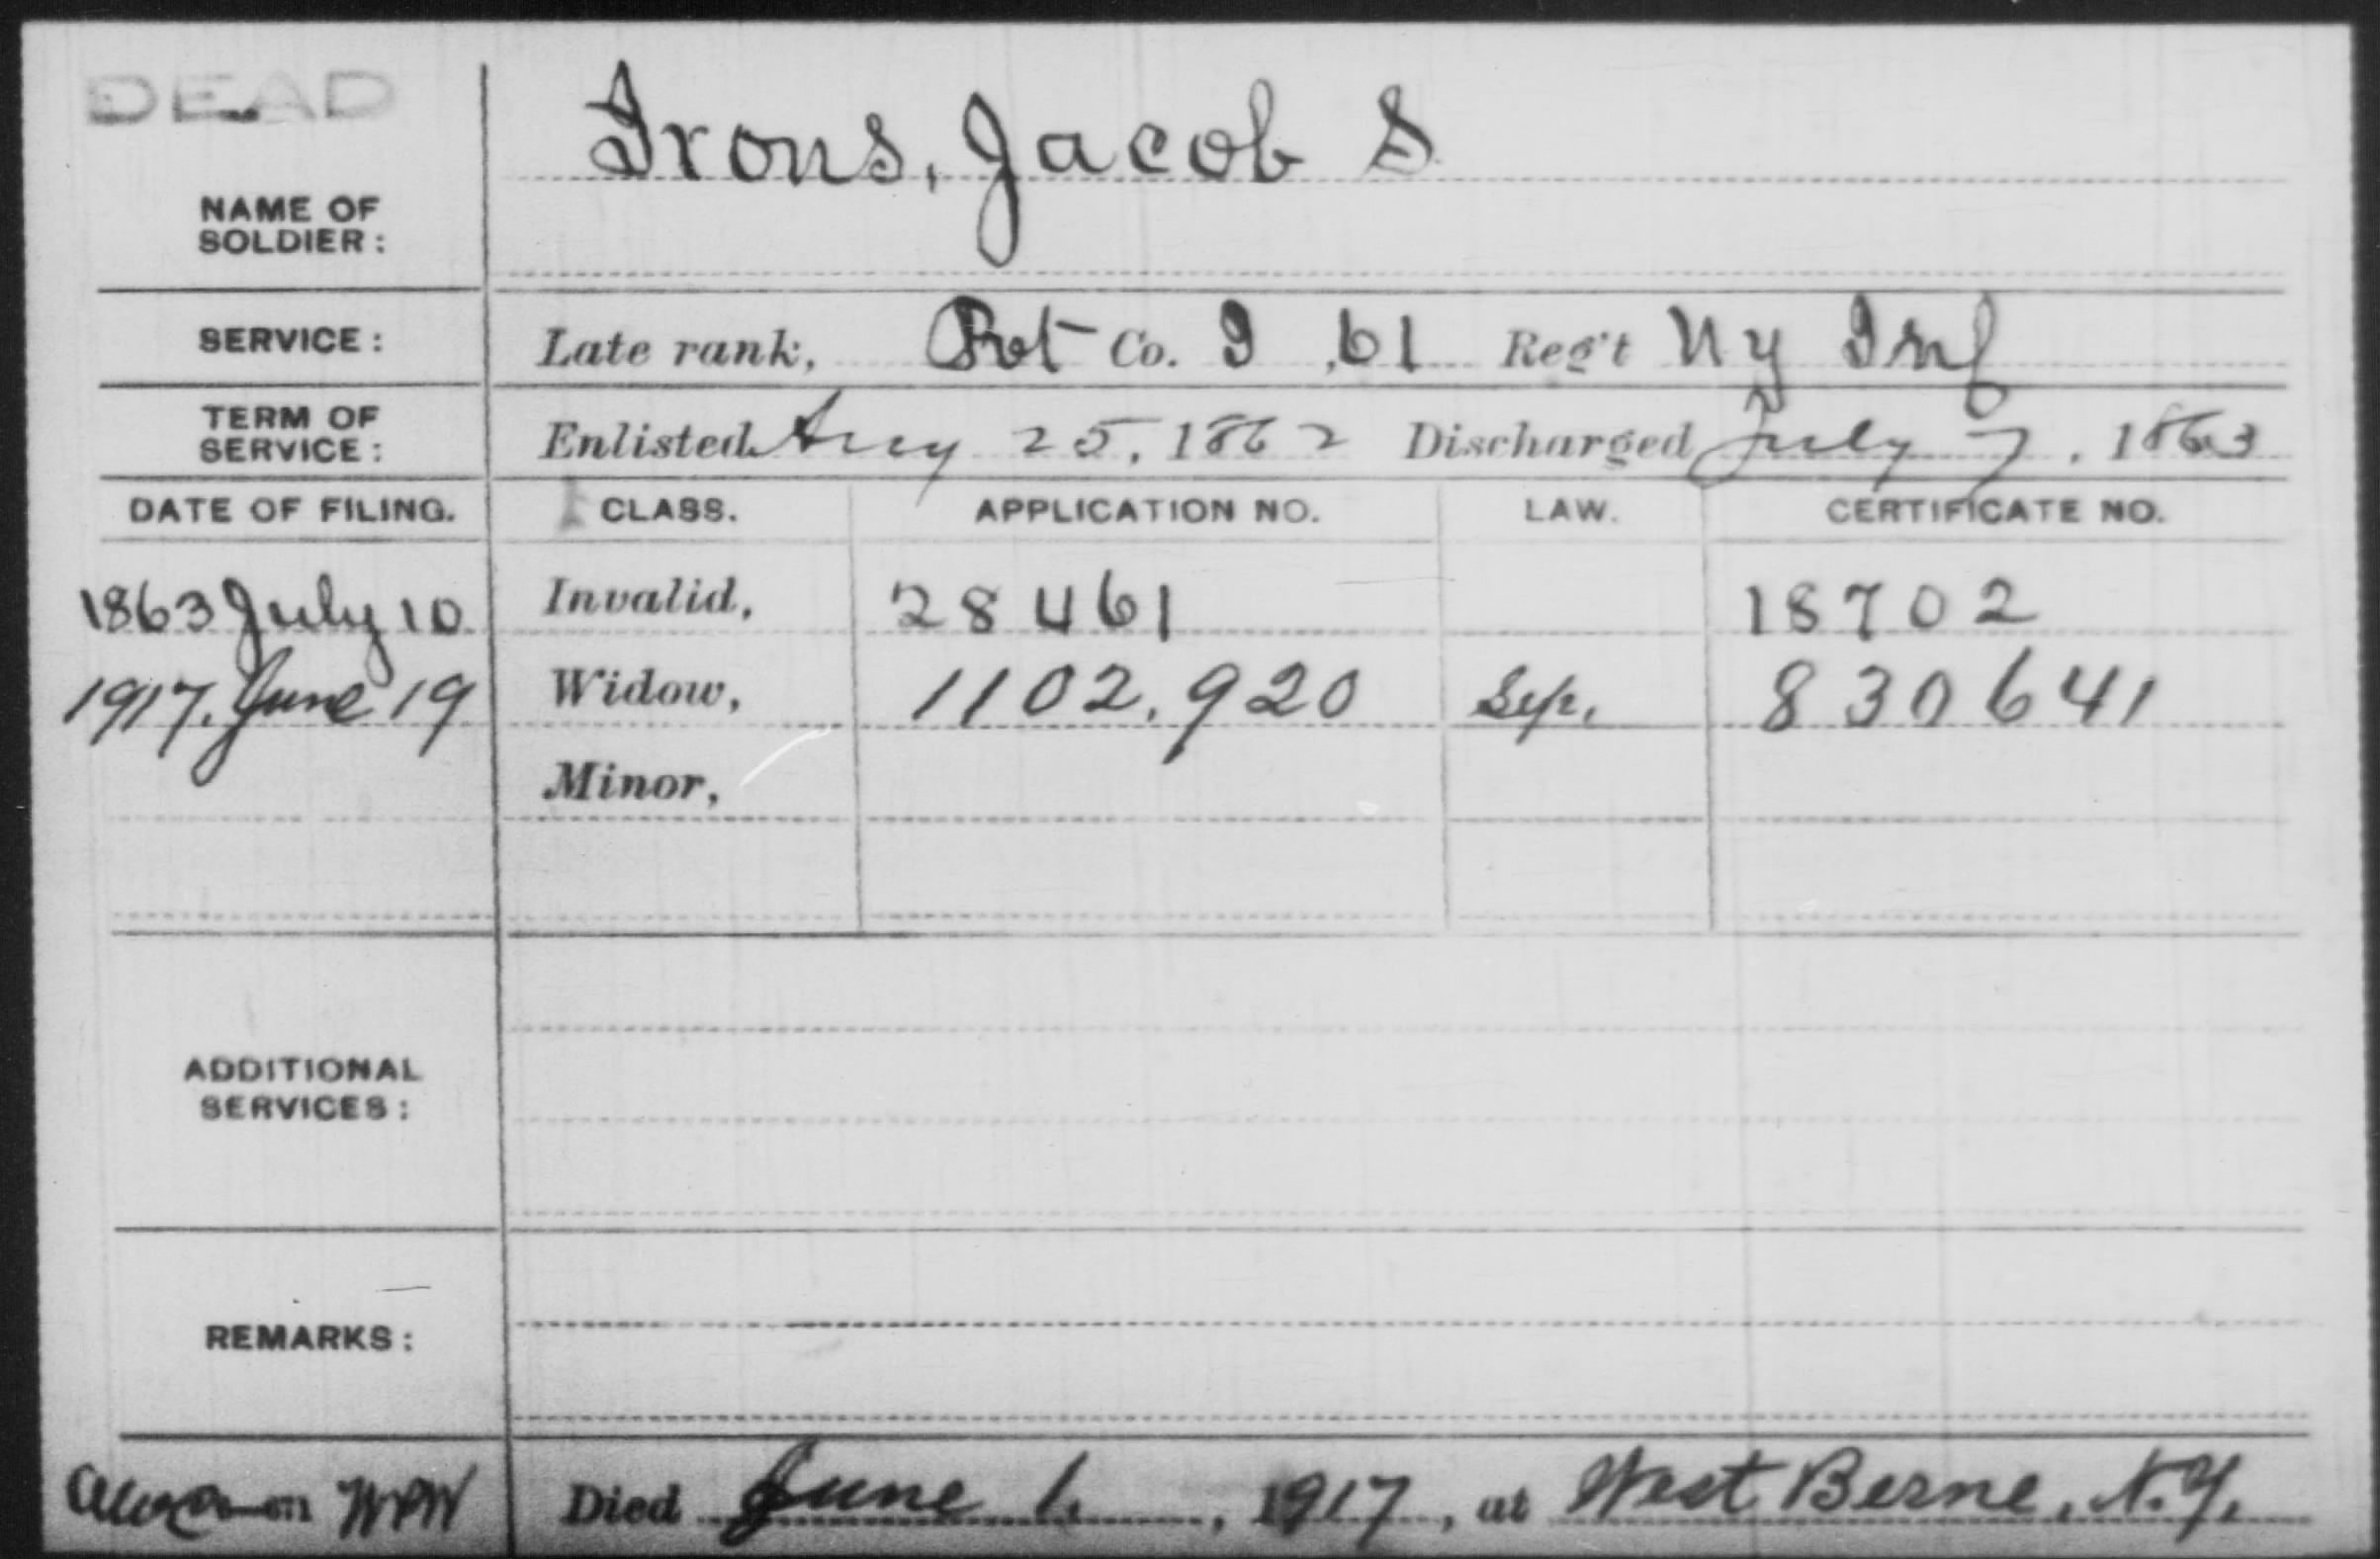 DEAD
NAME OF
SOLDIER:
Irons, Jacob S
SERVICE:
Late rank, Pvt Co. I, 61 Reg't Ny Inf
TERM OF
SERVICE:
Enlisted Aug 25, 1862 Discharged July 7, 1863
DATE OF FILING. CLASS. APPLICATION NO. LAW. CERTIFICATE NO.
1863 July 10 Invalid, 28461 18702
1917. June 19 Widow, 1102,920 Sep. 830641
Minor,
ADDITIONAL
SERVICES:
REMARKS:
WPW Died June 1, 1917, at West Berne, N.Y.